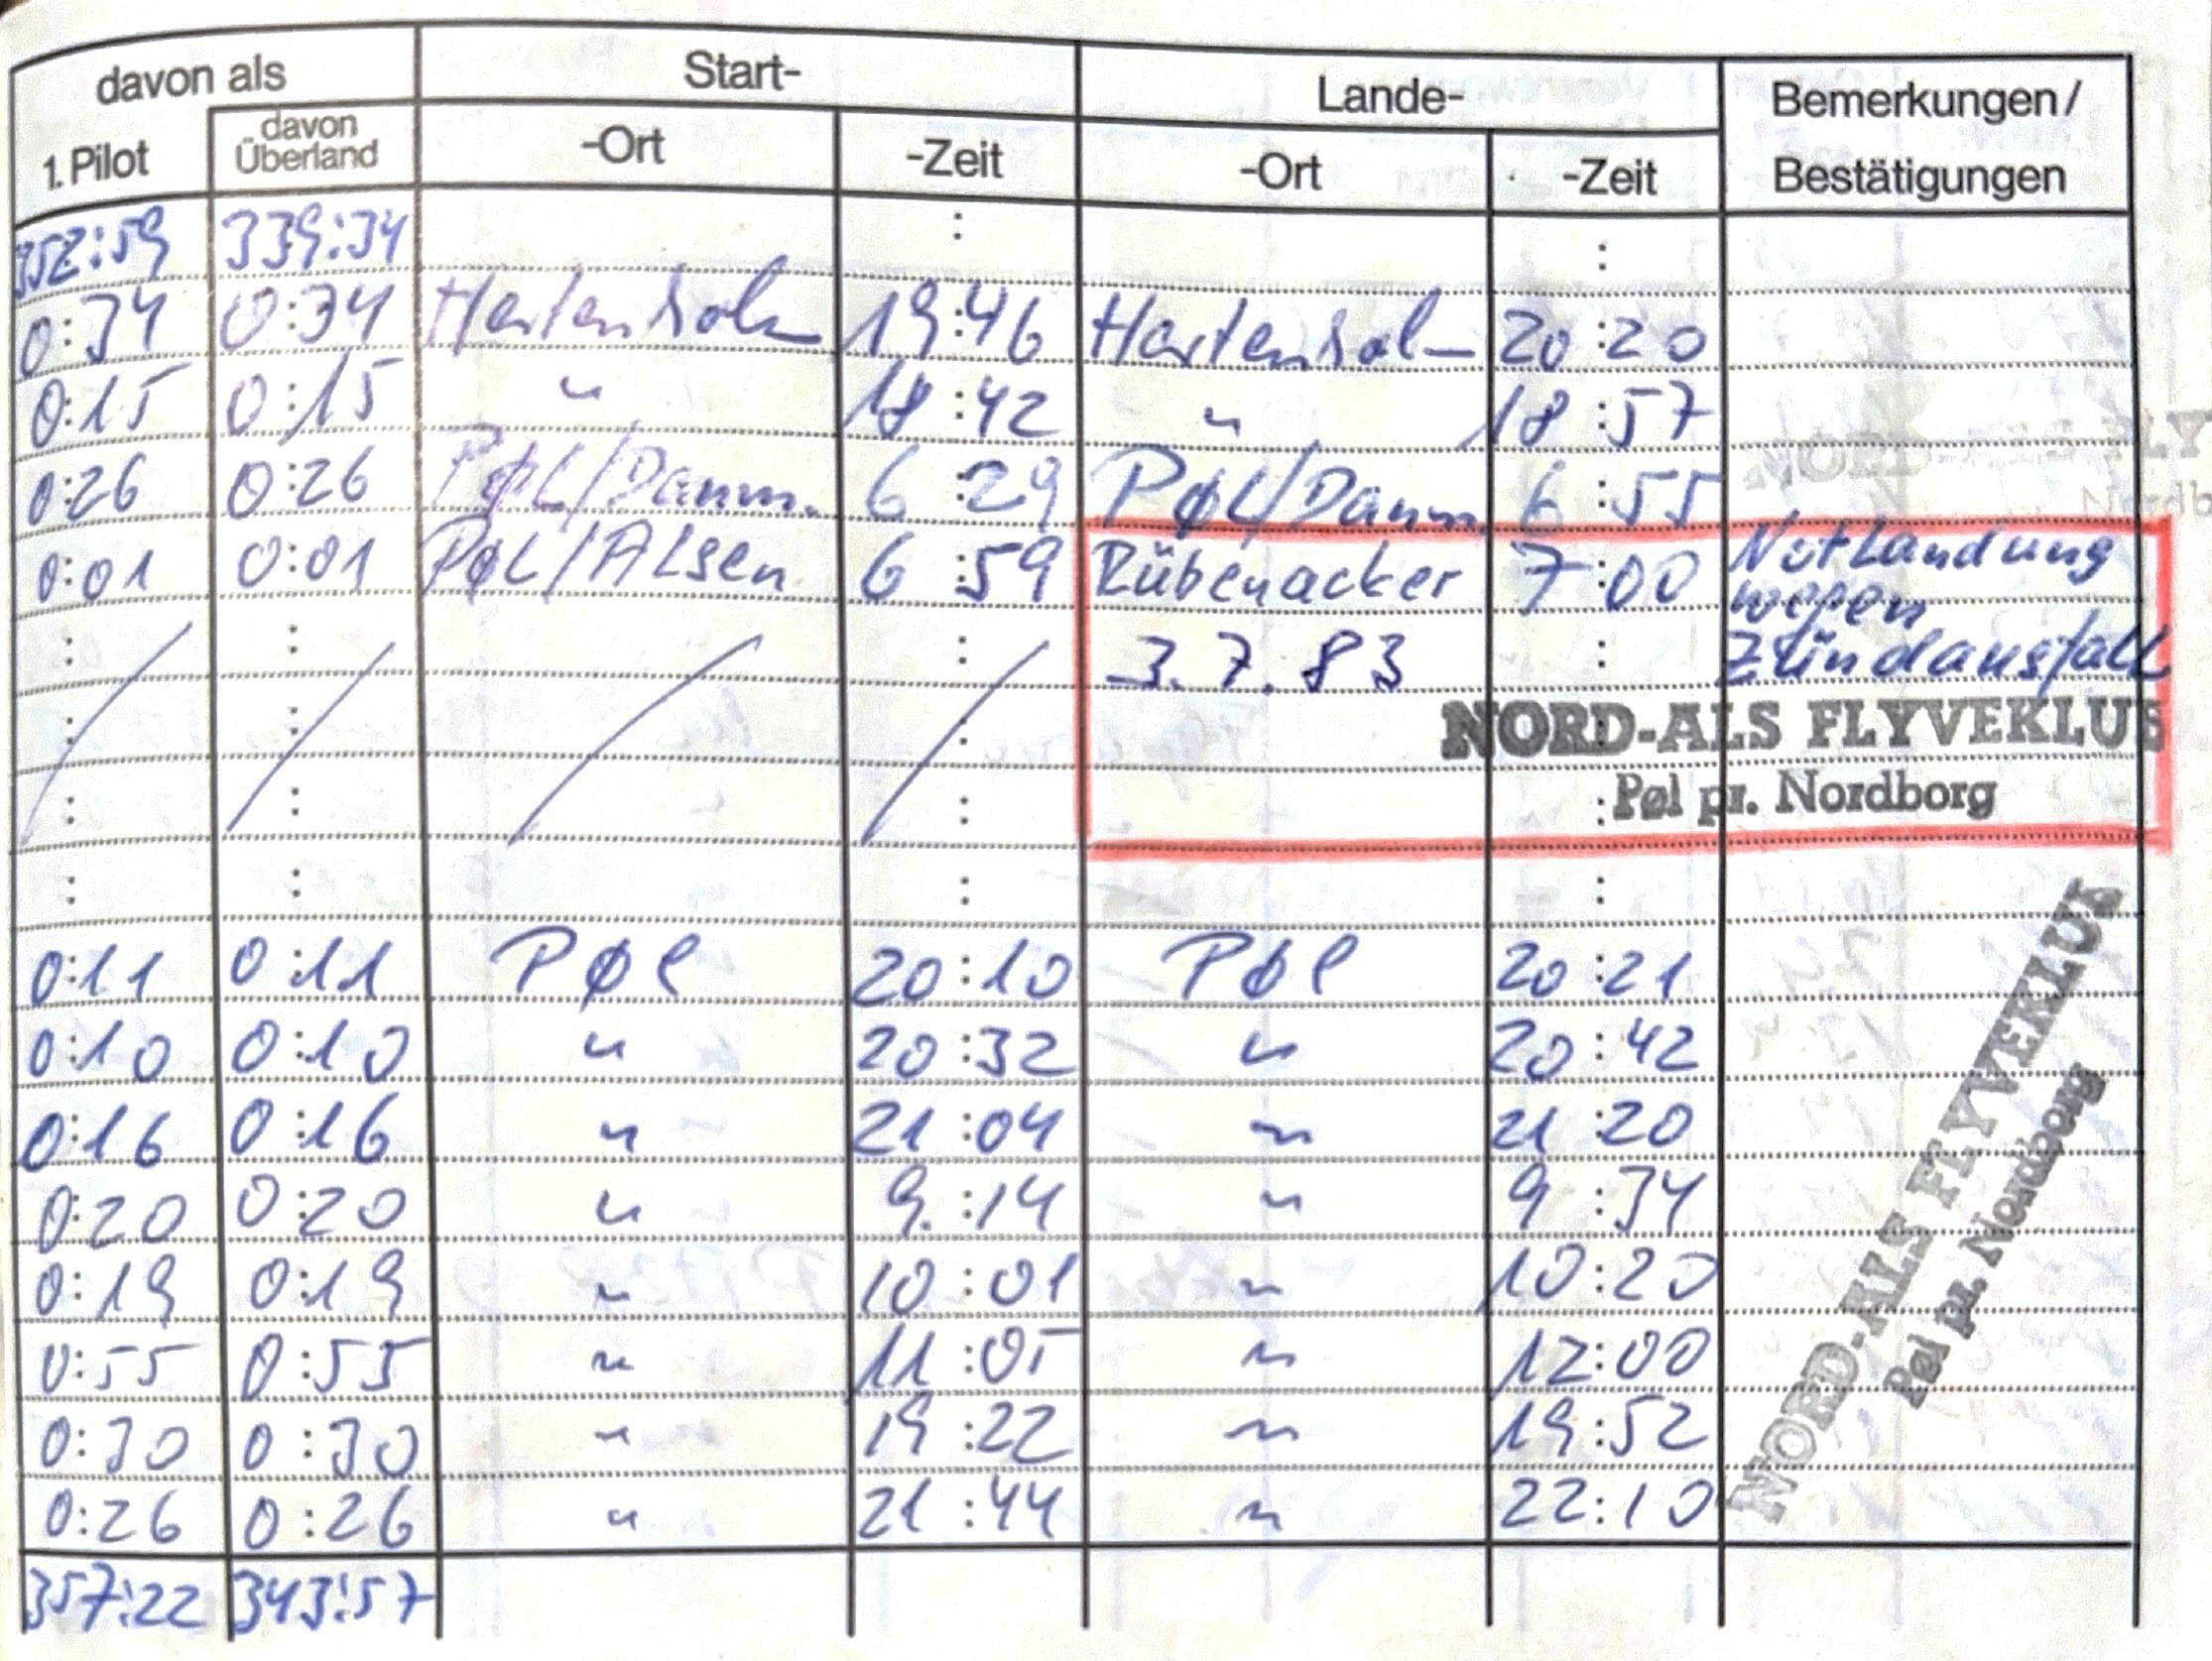 davon als Start- Lande- Bemerkungen/
1. Pilot davon Überland -Ort -Zeit -Ort -Zeit Bestätigungen
352:59 339:34 : :
0:34 0:34 Hartenholm 19:46 Hartenholm 20:20
0:15 0:15 " 18:42 " 18:57
0:26 0:26 PØL/Dänm. 6:29 PØL/Dänm. 6:55
0:01 0:01 PØL/ALsen 6:59 Rübenacker 7:00 NotLandung
wegen
: : : 3.7.83 : Zündausfall
: : : : NORD-ALS FLYVEKLUB
: : : : Pøl pr. Nordborg
: : : :
0:11 0:11 PØl 20:10 PØl 20:21
0:10 0:10 " 20:32 " 20:42
0:16 0:16 " 21:04 " 21:20
0:20 0:20 " 9:14 " 9:34
0:19 0:19 " 10:01 " 10:20
0:55 0:55 " 11:05 " 12:00
0:30 0:30 " 19:22 " 19:52
0:26 0:26 " 21:44 " 22:10
NORD-ALS FLYVEKLUB
Pøl pr. Nordborg
357:22 343:57